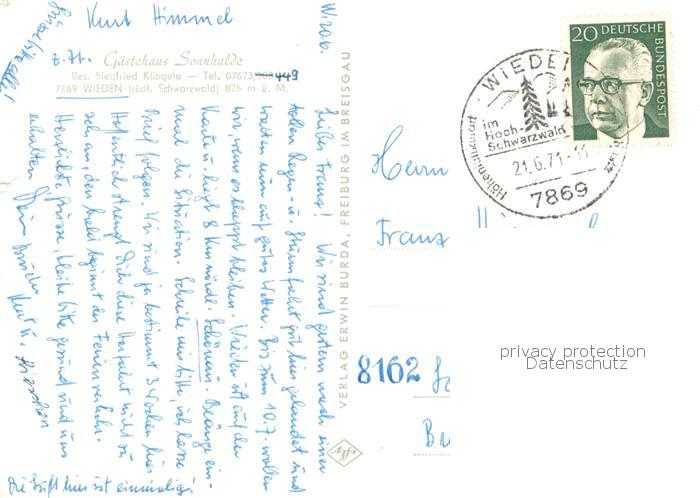 Kurt Himmel
z. Zt. Gästehaus Sonnhalde
Bes. Siegfried Klingele — Tel. 07673/ 449
7869 WIEDEN (südl. Schwarzwald) 875 m ü. M.
W. 20.6.
Lieber Franz! Wir sind gestern nach einer
tollen Regen- u. Sturmfahrt gut hier gelandet und
warten nun auf gutes Wetter. Bis zum 10.7. wollen
wir, wenn es klappt bleiben. Wieden ist auf der
Karte u. liegt 8 km nördl. Schönau.
mal die Situation. Schreibe mir bitte, ich lasse
Brief folgen. Wir sind ja bestimmt 3 Wochen hier.
Hoffentlich strengt Dich diese Herfahrt nicht zu
sehr an, denn heute beginnt der Ferienverkehr.
Herzliche Grüsse, bleibe bitte gesund und uns
erhalten Dein Bruder Kurt u.
Die Luft hier ist einmalig!
VERLAG ERWIN BURDA, FREIBURG IM BREISGAU
effbe
20 DEUTSCHE BUNDESPOST
WIEDEN
im Hoch-Schwarzwald
Höhenluftkurort
21.6.71-11
7869
Herrn
Franz
8162
privacy protection
Datenschutz